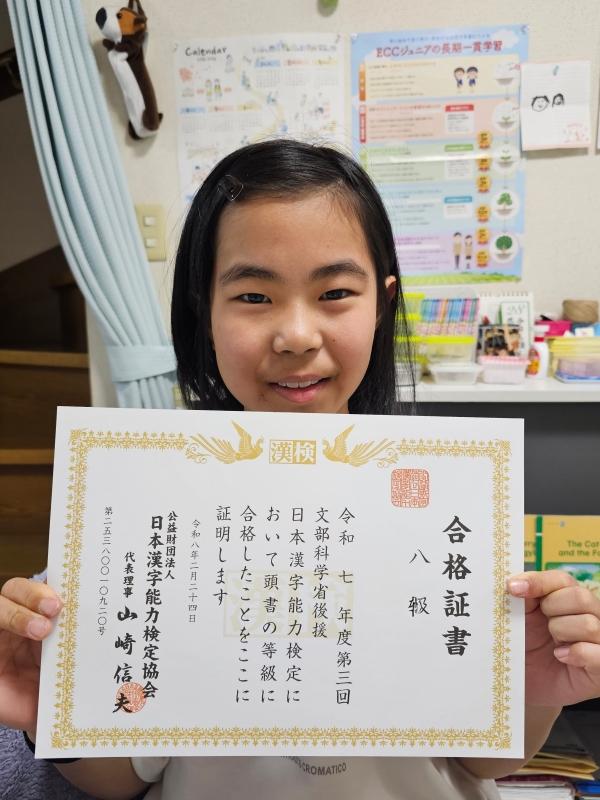 Calendar
ECCジュニアの長期一貫学習
漢検
合格証書
八級
令和七年度第三回
文部科学省後援
日本漢字能力検定に
おいて頭書の等級に
合格したことをここに
証明します
令和八年二月二十四日
公益財団法人
日本漢字能力検定協会
代表理事 山崎信夫
第二五三八〇〇一〇九二〇号
The Cat
and the Fo
CROMATICO